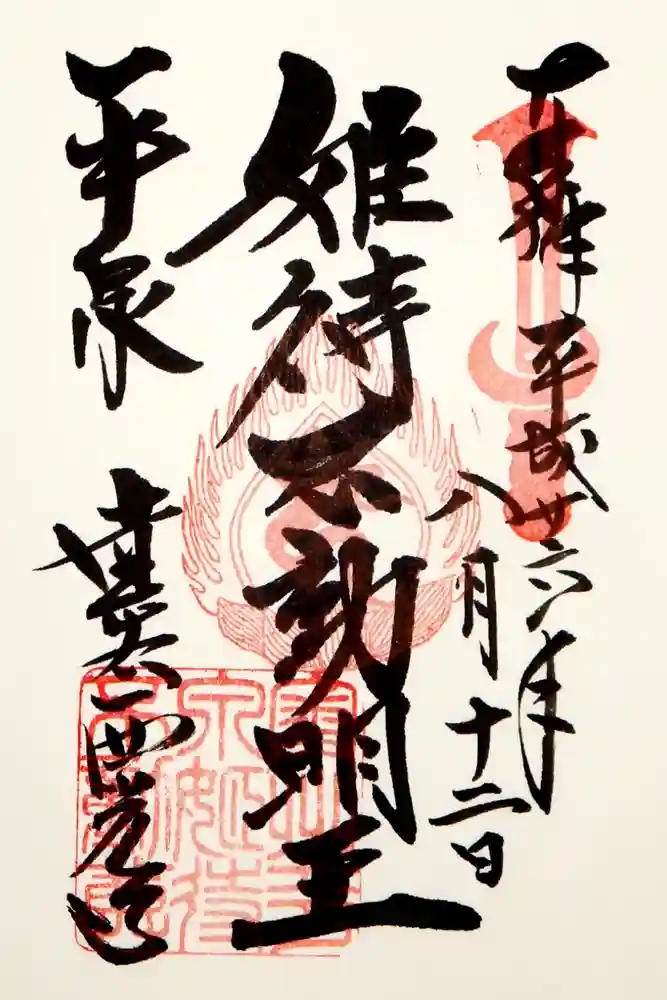 奉拝 平成廿六年
八月十二日
姫待不動明王
平泉 西光寺